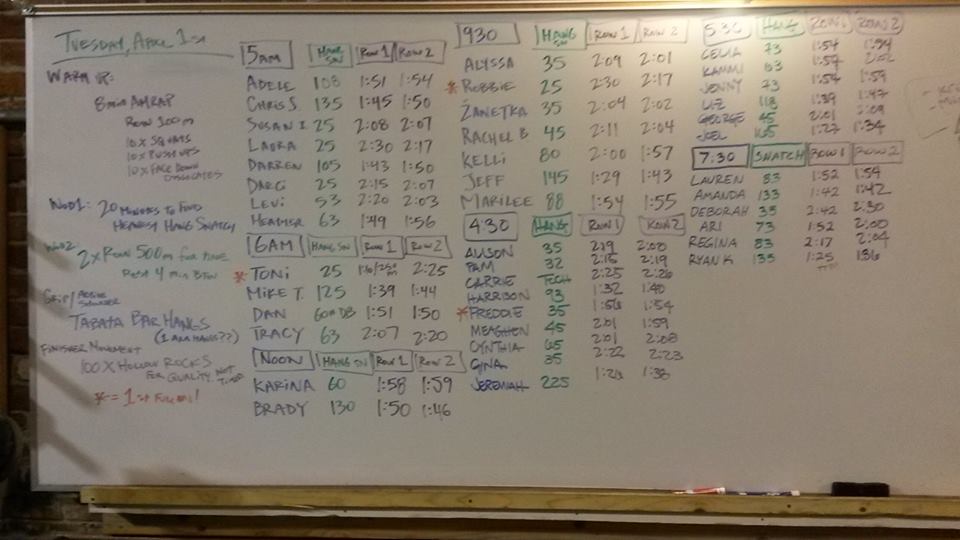 Tuesday, April 1st
WARM UP:
8 min AMRAP
Row 100 m
10x SQUATS
10x PUSH UPS
10x FACE DOWN
WOD1: 20 MINUTES TO FIND
HEAVIEST HANG SNATCH
WOD2: 2x ROW 500m FOR TIME
REST 4 min BTW
GRIP/ACTIVE SHOULDER
TABATA BAR HANGS
(1 ARM HANGS??)
FINISHER MOVEMENT
100 X HOLLOW ROCKS
FOR QUALITY, NOT TIME
* = 1st
5AM HANG SN ROW 1 ROW 2
ADELE 108 1:51 1:54
CHRIS S 135 1:45 1:50
SUSAN I. 25 2:08 2:07
LAURA 25 2:30 2:17
DARREN 105 1:43 1:50
DARCI 25 2:15 2:07
LEVI 53 2:20 2:03
HEATHER 63 1:49 1:56
6AM HANG SN ROW 1 ROW 2
* TONI 25 2:25
MIKE T. 125 1:39 1:44
DAN 60# DB 1:51 1:50
TRACY 63 2:07 2:20
NOON HANG SN ROW 1 ROW 2
KARINA 60 1:58 1:59
BRADY 130 1:50 1:46
930 HANG SN ROW 1 ROW 2
ALYSSA 35 2:09 2:01
* ROBBIE 25 2:30 2:17
ŽANETKA 35 2:04 2:02
RACHEL B 45 2:11 2:04
KELLI 80 2:00 1:57
JEFF 145 1:29 1:43
MARILEE 88 1:54 1:55
4:30 HANG ROW 1 ROW 2
ALISON 35 2:19 2:00
PAM 32 2:15 2:19
CARRIE TECH 2:25 2:26
HARRISON 93 1:32 1:40
* FREDDIE 35 1:56 1:54
MEAGHEN 45 2:01 1:59
CYNTHIA 65 2:01 2:08
GINA 35 2:22 2:23
JEREMIAH 225 1:26 1:38
5:30 HANG ROW 1 ROW 2
73 1:54 1:54
KAMMI 63 1:59 2:02
JENNY 73 1:54 1:59
LIZ 118 1:39 1:47
GEORGE 45 2:01 2:09
JOEL 165 1:27 1:34
7:30 SNATCH ROW 1 ROW 2
LAUREN 83 1:52 1:54
AMANDA 133 1:42 1:42
DEBORAH 35 2:42 2:30
ARI 73 1:52 2:00
REGINA 83 2:17 2:04
RYAN K 135 1:25 1:36